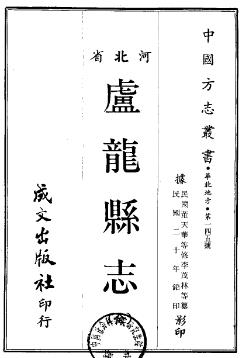 中國方志叢書·華北地方·第一四五號
據民國董天華等修李茂林等纂
民國二十年鉛印影印
河北省
盧龍縣志
成文出版社印行